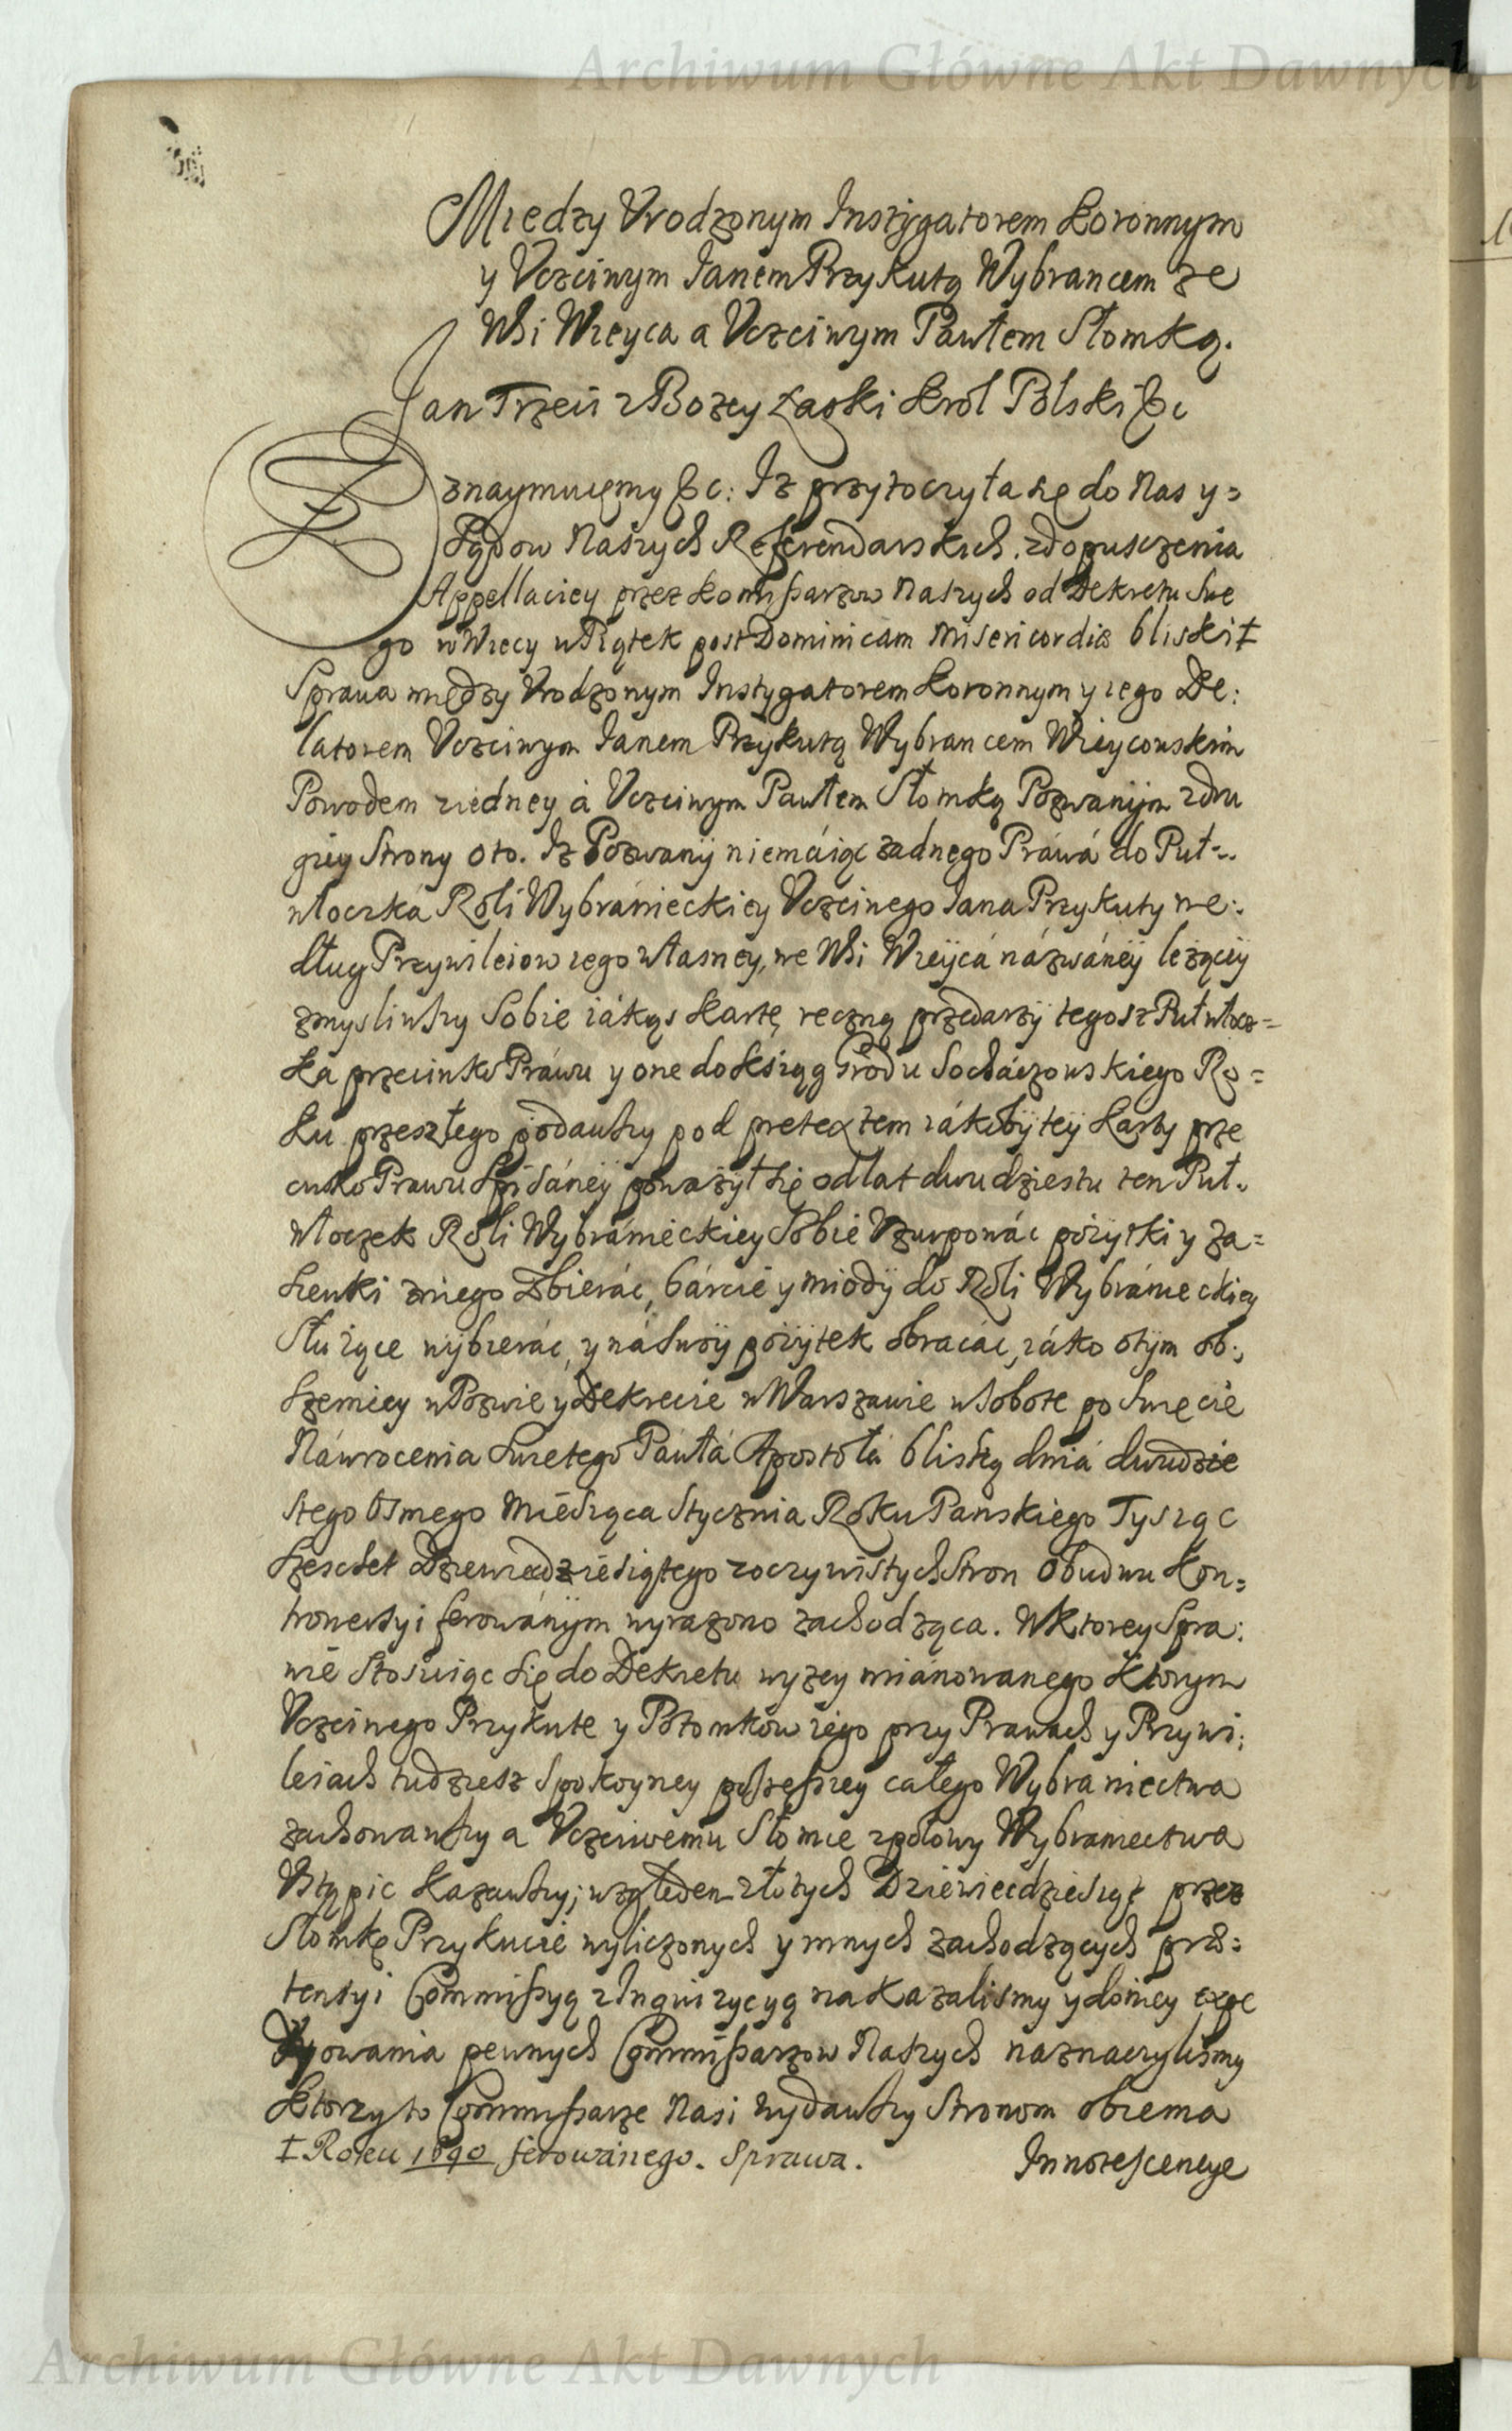 Archiwum Główne Akt Dawnych
Między Vrodzonym Instygatorem Koronnym
y Vczciwym Janem Przykutą Wybrancem ze
Wsi Wreyca a Vczciwym Pawłem Słomką.
Jan Trzeci z Bozey Łaski Krol Polski &c
Oznaymuięmy &c: Iz przytoczyła się do Nas y=
Sądow Naszych Referendarskich, z dopusczenia
Appellaciey przez Kommissarzow Naszych od Dekretu Swe
go w Wrecy w Piątek post Dominicam Misericordiæ bliski ‡
Sprawa między Vrodzonym Instygatorem Koronnym y iego De:
latorem Vczciwym Janem Przykutą Wybrancem Wreycowskim
Powodem z iedney à Vczciwym Pawłem Słomką Pozwanym z dru
giey Strony o to. Iz Pozwany niemáiąc zadnego Práwá do Puł=
włoczká Roli Wybránieckiey Vczciwego Jana Przykuty we:
dług Przywileiow iego własney, we Wsi Wreycá názwáney leżącey
zmysliwszy Sobie iákąs Kartę ręczną przedarzy tegosz Pułwłocz=
ka przeciwko Práwu y one do Ksiąg Grodu Sochaczowskiego Ro=
ku przeszłego podawszy pod pretextem iákoby tey Karty prze
ciwko Prawu Spisáney poważył się od lat dwudziestu ten Puł=
włoczek Roli Wybránieckiey Sobie Vzurpowác pożytki y za=
siewki z niego Zbierác, bárcie y miody do Roli Wybránieckiey
Służące wybierác, y ná swoy pożytek obracác, iáko o tym ob:
szerniey w Pozwie y Dekrecie w Warszawie w Sobote po Swięcie
Náwrocenia Swietego Páwłá Apostołá bliską dniá dwudzie
stego Osmego Miesiąca Stycznia Roku Panskiego Tysiąc
Szescset Dziewiędziesiątego z oczywistych Stron Obudwu Kon=
trowersyi ferowánym wyrazono zachodząca. W Ktorey Spra:
wie Stosuiąc się do Dekretu wyzey miánowanego Ktorym
Vczciwego Przykute y Potomkow iego przy Prawach y Przywi:
leiach tudziesz Spokoyney possessiey całego Wybraniectwa
zachowawszy a Vczciwemu Słomce z połowy Wybraniectwa
Vstąpic Kazawszy; względem złotych Dziewiecdziesiąt przez
Słomkę Przykucie wyliczonych y innych zachodzących præ=
tensyi Commissyą z Inqwizycyą nakazalismy y do niey expe
dyowania pewnych Commissarzow Naszych naznaczylismy
Ktorzy to Commissarze Nasi wydawszy Stronom obiema
‡ Roku 1690 ferowánego. Sprawa. Innotescencye
Archiwum Główne Akt Dawnych